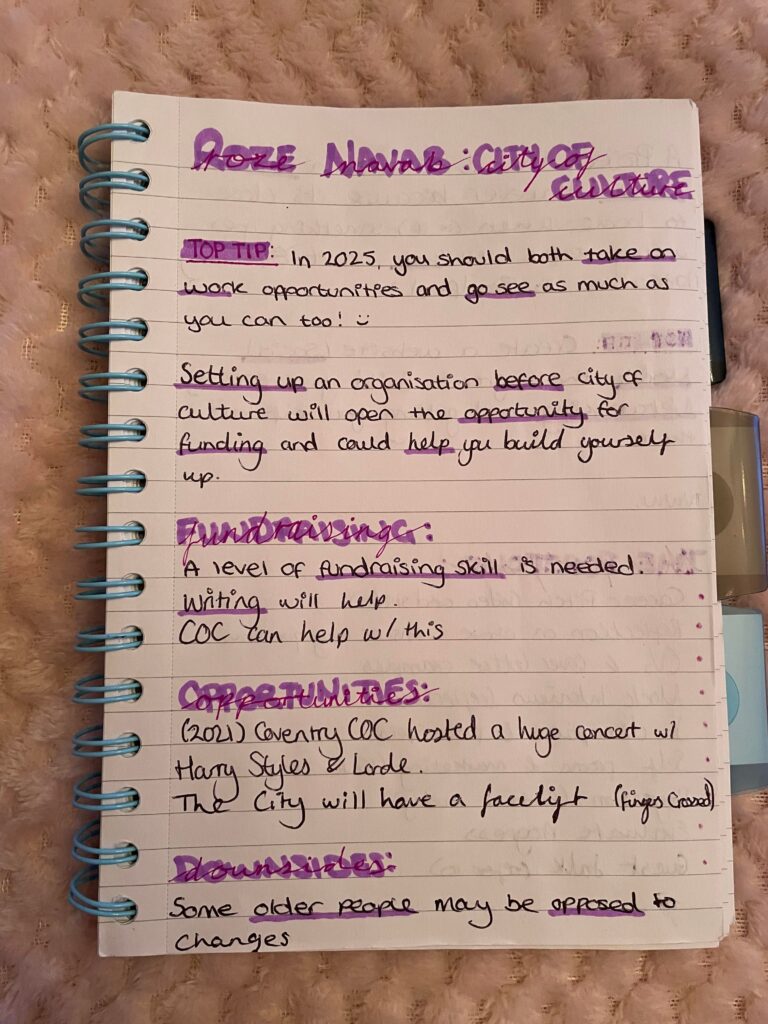 Roze Navab: City of
Culture
TOP TIP: In 2025, you should both take on
work opportunities and go see as much as
you can too! :)
Setting up an organisation before city of
culture will open the opportunity for
funding and could help you build yourself
up.
Fundraising:
A level of fundraising skill is needed.
Writing will help.
COC can help w/ this
Opportunities:
(2021) Coventry COC hosted a huge concert w/
Harry Styles & Lorde.
The City will have a facelift (Fingers Crossed)
Downsides:
Some older people may be opposed to
changes